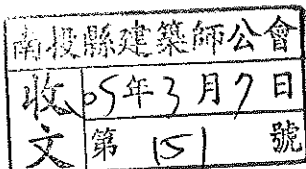 南投縣建築師公會
收文
05年3月7日
第151號